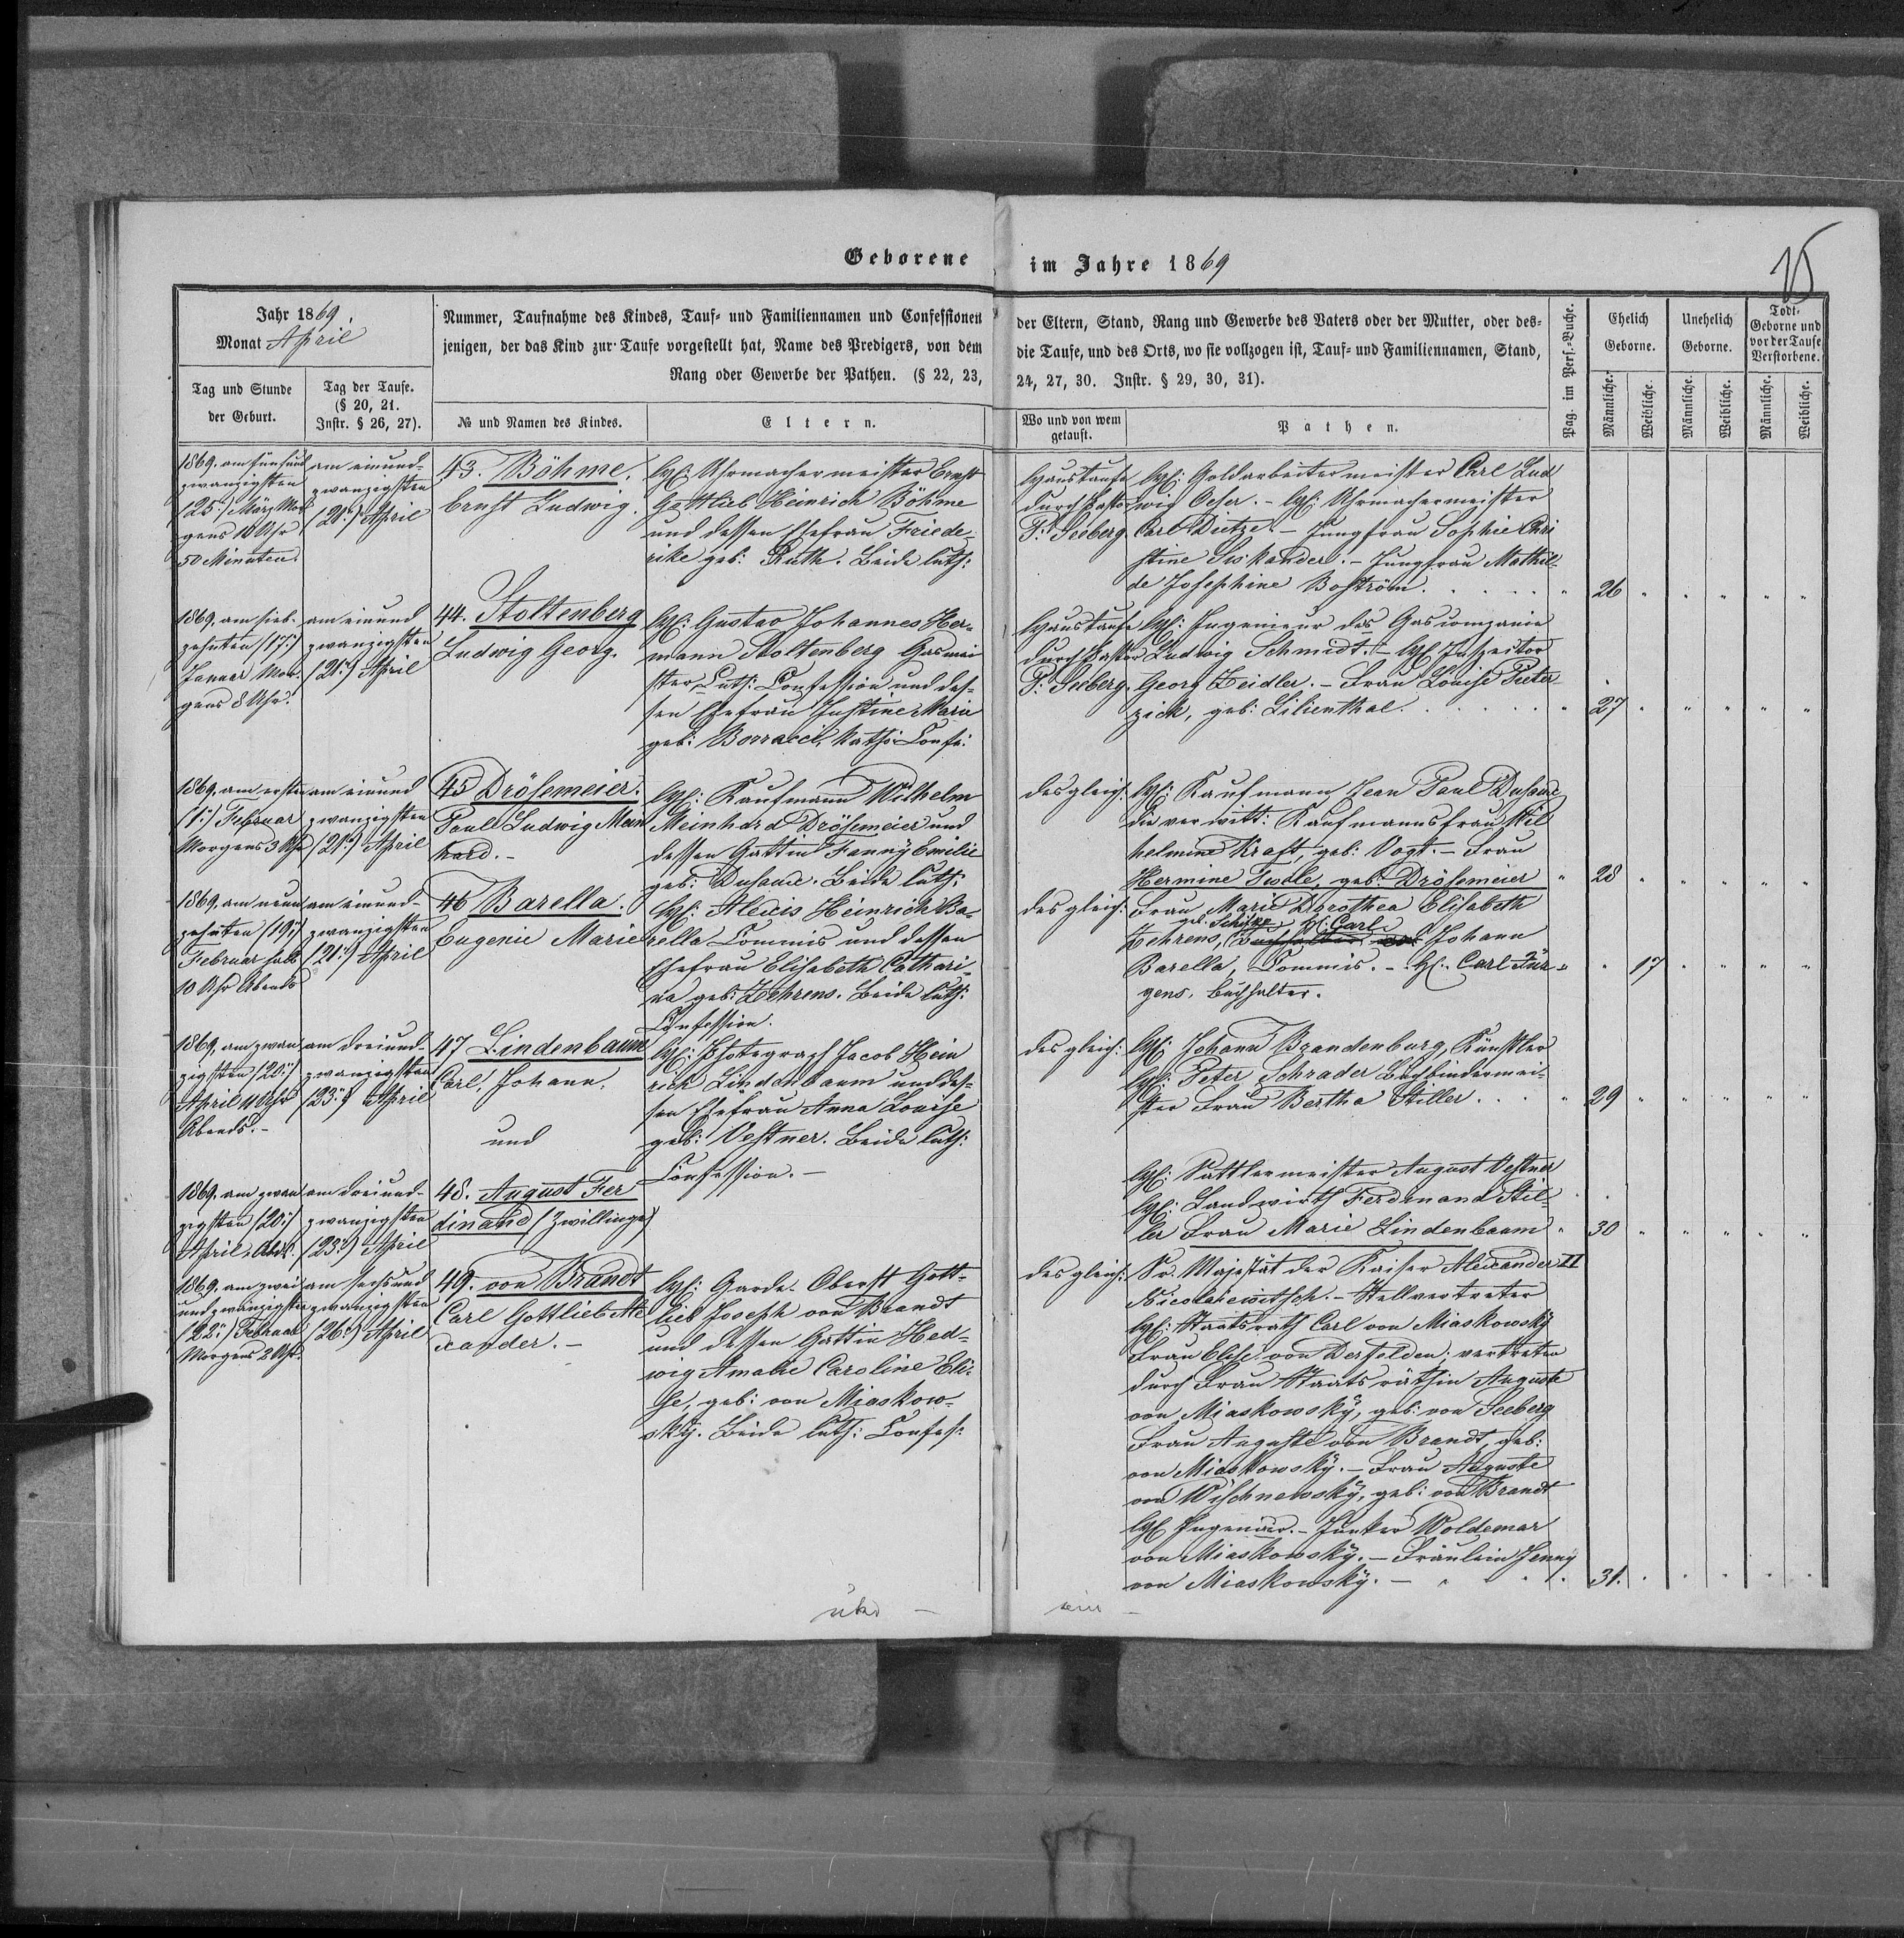 Geborene im Jahre 1869
15
Jahr 1869.
Monat April
Nummer, Taufnahme des Kindes, Tauf- und Familiennamen und Confessionen
jenigen, der das Kind zur Taufe vorgestellt hat, Name des Predigers, von dem
Rang oder Gewerbe der Pathen. (§ 22, 23,
Tag und Stunde
der Geburt.
Tag der Taufe.
(§ 20, 21.
Instr. § 26, 27).
№ und Namen des Kindes.
Eltern.
der Eltern, Stand, Rang und Gewerbe des Vaters oder der Mutter, oder des-
die Taufe, und des Orts, wo sie vollzogen ist, Tauf- und Familiennamen, Stand,
24, 27, 30. Instr. § 29, 30, 31).
Wo und von wem
getauft.
Pathen.
Pag. im Pers.-Buche.
Ehelich
Geborne.
Unehelich
Geborne.
Todt-
Geborne und
vor der Taufe
Verstorbene.
Männliche.
Weibliche.
Männliche.
Weibliche.
Männliche.
Weibliche.
1869. am fünfund
zwanzigsten
(25.) März Mor
gens 10 Uhr
50 Minuten.
am einund-
zwanzigsten
(21.) April
43. Böhme.
Ernst Ludwig.
H. Uhrmachermeister Ernst
Gottlieb Heinrich Böhme
und dessen Ehefrau Friede-
rike geb: Ruth. Beide luth:
Haustaufe
durch Pastor
P. Seeberg.
H. Goldarbeitermeister Carl Lud
wig Oeser. - H. Uhrmachermeister
Carl Dietze. - Jungfrau Sophie Chri
stine Siskander. - Jungfrau Mathil-
de Josephine Boström.
26
1869. am sieb-
zehnten (17.)
Januar Mor-
gens 8 Uhr.
am einund
zwanzigsten
(21.) April
44. Stoltenberg
Ludwig Georg.
H. Gustav Johannes Her-
mann Stoltenberg Gasmei
ster, Luth: Confession und des-
sen Ehefrau Justine Marie
geb: Borracci, Kath: Conf:
Haustaufe
durch Pastor
P. Seeberg.
H. Ingenieur der Gascompanie
Ludwig Schmidt. - H. Inspector
Georg Zeidler. - Frau Louise Pieter
zick, geb: Lilienthal.
27
1869. am ersten
(1.) Februar
Morgens 3 Uhr
am einund
zwanzigsten
(21.) April
45 Drösemeier.
Paul Ludwig Mein
hard.-
H. Kaufmann Wilhelm
Meinhard Drösemeier und
dessen Gattin Fanny Emilie
geb: Dusaue. Beide luth.
desgleich:
H. Kaufmann Jean Paul Dusaue
die verwitt: Kaufmannsfrau Wil
helmine Kraft, geb: Vogt. - Frau
Hermine Twele, geb: Drösemeier
28
1869. am neun
zehnten (19.)
Februar halb
10 Uhr Abends
am einund-
zwanzigsten
(21.) April
46 Barella.
Eugenie Marie
H. Alexis Heinrich Ba-
rella Commis und dessen
Ehefrau Elisabeth Cathari-
na geb: Zehrens. Beide luth:
Confession.
desgleich:
Frau Marie Dorothea Elisabeth
geb. H. Carl
Zehrens, Johann
Barella, Commis. - H. Carl Jür-
gens, Buchhalter.
17
1869. am zwan
zigsten (20.)
April 11 Uhr
Abends.-
am dreiund-
zwanzigsten
(23.) April
47 Lindenbaum
Carl, Johann.
und
H. Photograph Jacob Hein
rich Lindenbaum und des-
sen Ehefrau Anna Louise
geb: Vestner. Beide luth:
Confession.-
desgleich:
H. Johann Brandenburg, Künstler
H. Peter Schrader Buchbindermei-
ster Frau Bertha Stiller
29
1869. am zwan
zigsten (20.)
April
am dreiund-
zwanzigsten
(23.) April
48. August Fer
dinand (Zwillinge)
H. Sattlermeister August Vestner
H. Landwirth Ferdinand Stil-
ler Frau Marie Lindenbaum
30
1869. am zwei
und zwanzigsten
(22.) Februar
Morgens 2 Uhr.
am sechsund
zwanzigsten
(26.) April
49. von Brandt
Carl Gottlieb Ale
xander.-
H. Garde-Oberst Gott-
lieb Joseph von Brandt
und dessen Gattin Hed-
wig Amalie Caroline Eli-
se, geb: von Miaskow-
sky. Beide luth: Confess:
desgleich:
Sr. Majestät der Kaiser Alexander II
Nicolaiewitsch. - Stellvertreter
H. Staatsrath Carl von Miaskowsky
Frau Elise von Derfelden, vertreten
durch Frau Staatsräthin Auguste
von Miaskowsky, geb: von Seeberg
Frau Auguste von Brandt, geb:
von Miaskowsky. - Frau Auguste
von Wischnewsky, geb: von Brandt
H. Ingenieur-Junker Woldemar
von Miaskowsky. - Fräulein Jenny
von Miaskowsky. -
31.